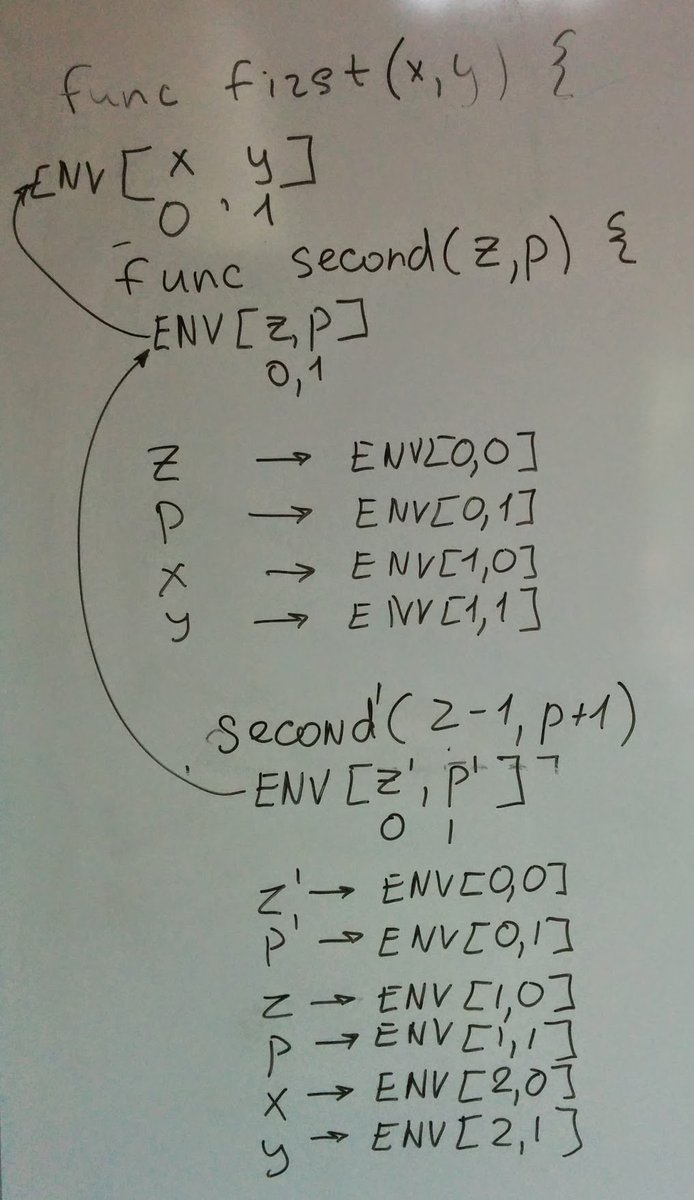 func first(x,y) {
ENV[x y]
0 , 1
func second(z,p) {
ENV[z,p]
0,1
z → ENV[0,0]
p → ENV[0,1]
x → ENV[1,0]
y → ENV[1,1]
second'(z-1, p+1)
ENV[z', p']
0 1
z' → ENV[0,0]
p' → ENV[0,1]
z → ENV[1,0]
p → ENV[1,1]
x → ENV[2,0]
y → ENV[2,1]